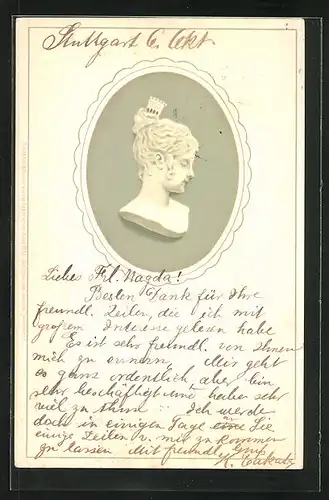 Stuttgart 6. Okt.
Liebes Frl. Magda!
Besten Dank für Ihre
freundl. Zeilen, die ich mit
großem Interesse gelesen habe
Es ist sehr freundl. von Ihnen
mich zu erinnern. Mir geht
es ganz ordentlich, aber bin
sehr beschäftigt und haben sehr
viel zu thun. Ich werde
doch in einigen Tage Sie
einige Zeilen v. mir zu kommen
zu lassen Mit freundl. Gruss